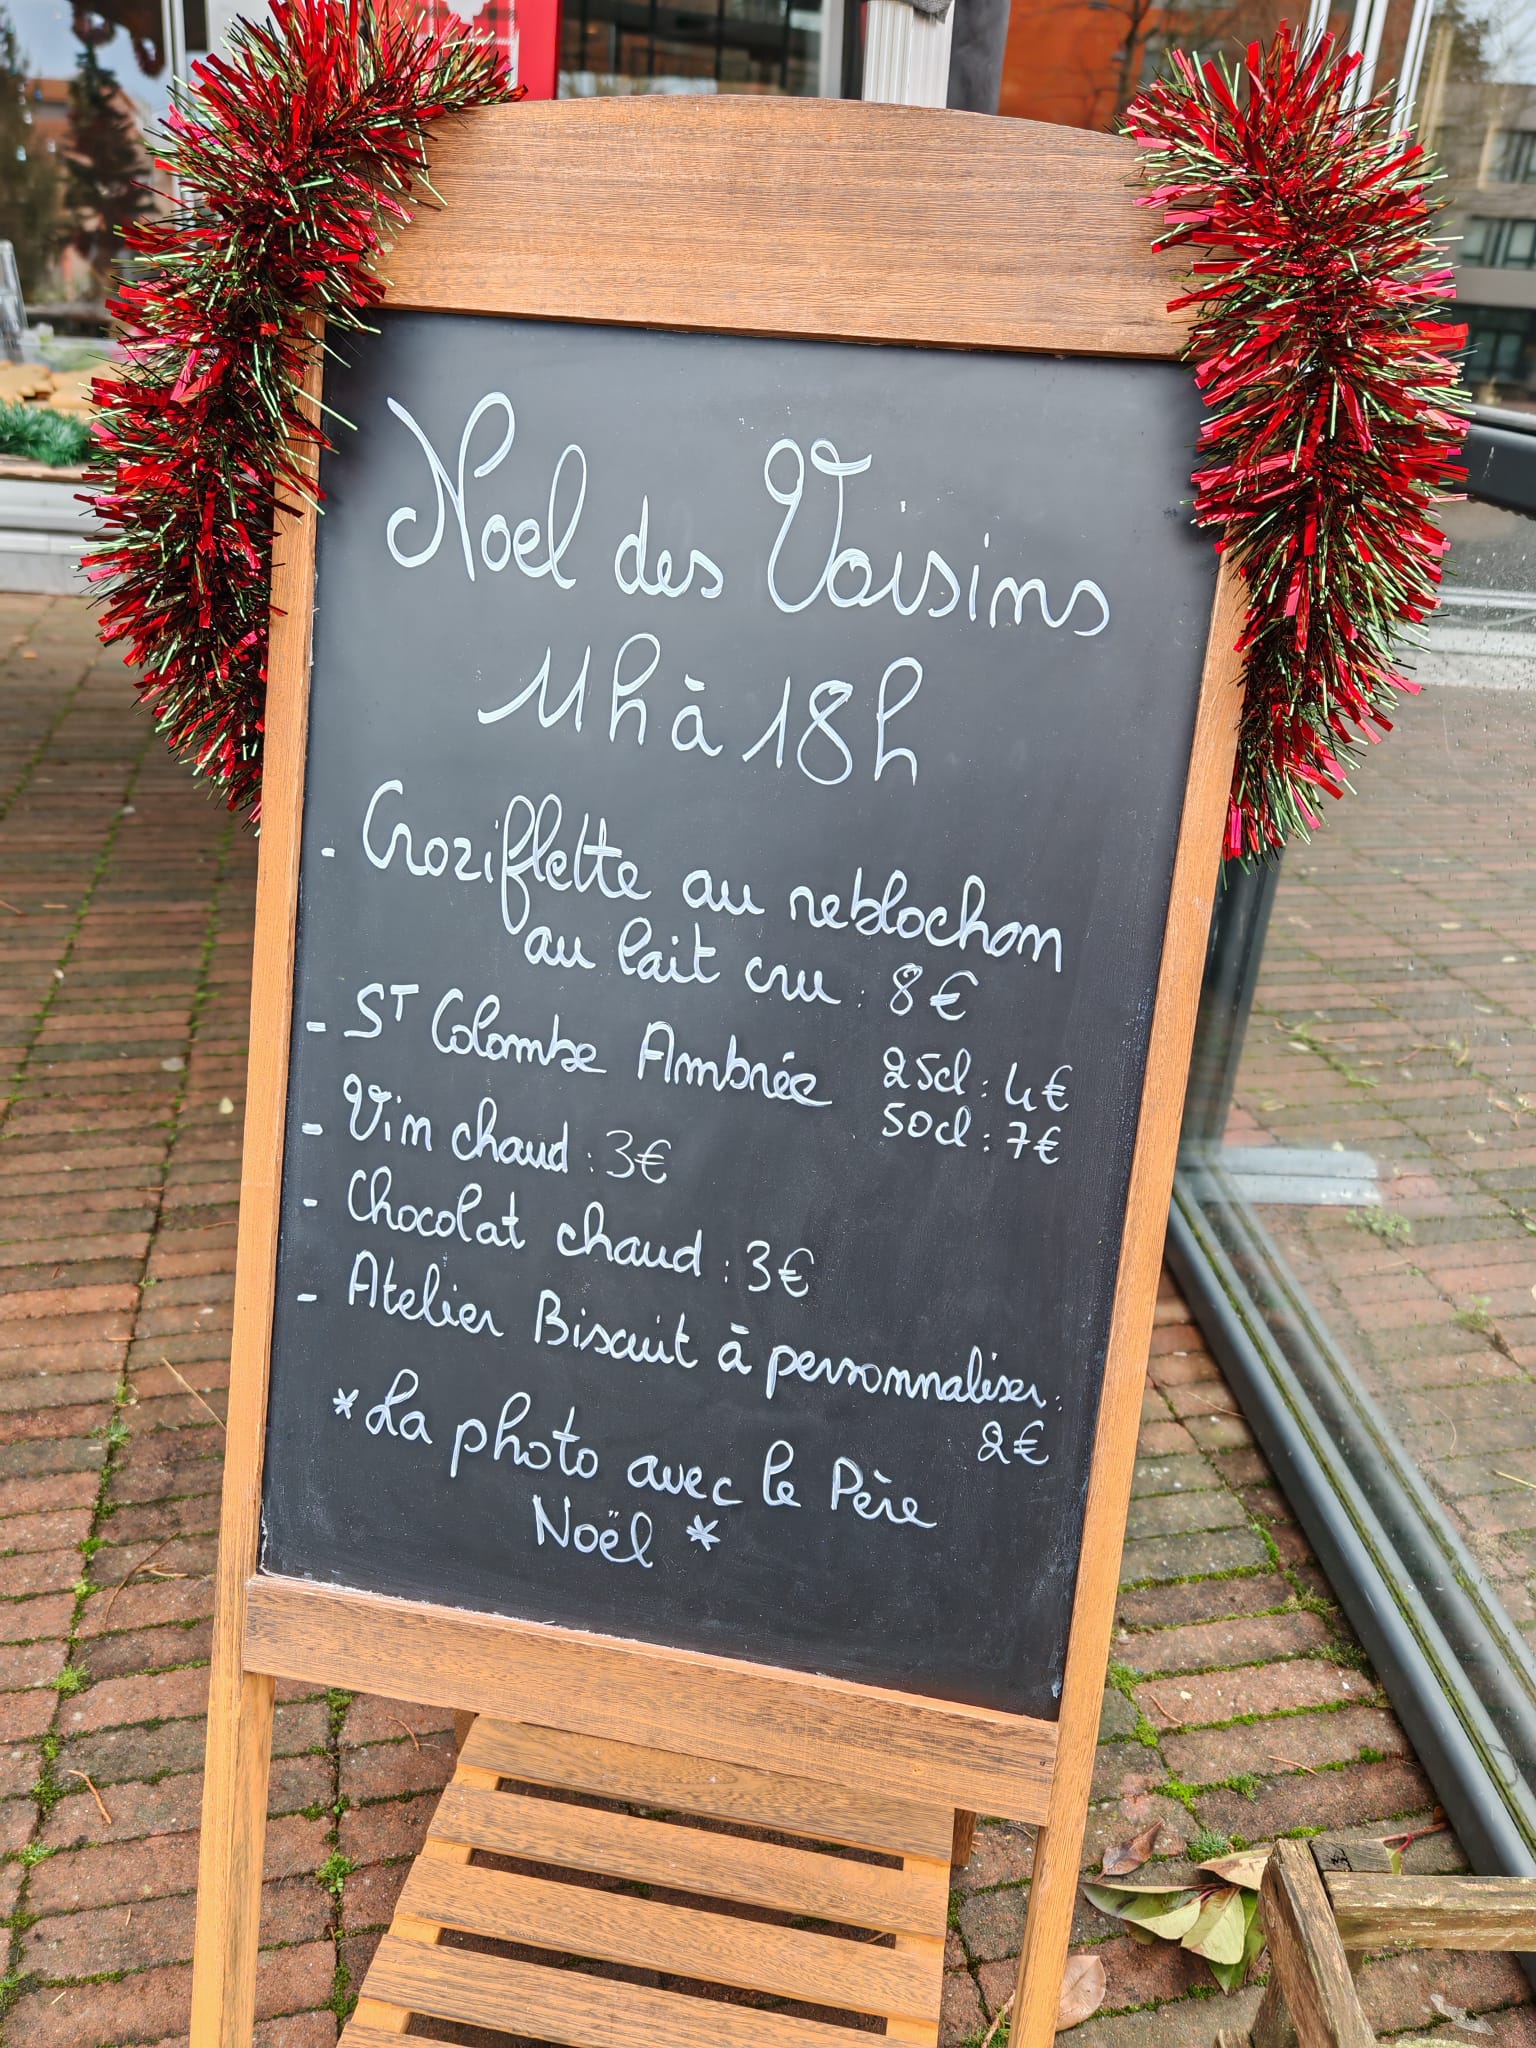 Noel des Voisins
11h à 18h
- Croziflette au reblochon
au lait cru : 8€
- ST Colombe Ambrée 25cl : 4€
50cl : 7€
- Vin chaud : 3€
- Chocolat chaud : 3€
- Atelier Biscuit à personnaliser :
2€
* La photo avec le Père
Noël *